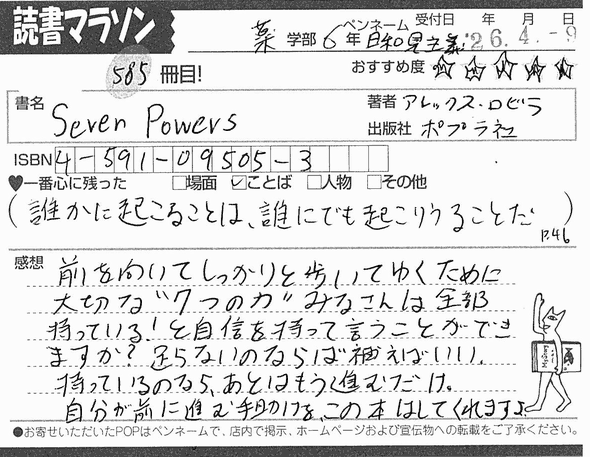 読書マラソン
薬 学部 6年 ペンネーム 日和見主義 受付日 年 月 日
'26.4.-9
585 冊目!
おすすめ度 ☆☆☆☆☆
書名 Seven Powers
著者 アレックス・ロビラ
出版社 ポプラ社
ISBN 4-591-09505-3
♥一番心に残った □場面 ☑ことば □人物 □その他
(誰かに起こることは、誰にでも起こりうることだ)
P.46
感想
前を向いてしっかりと歩いてゆくために
大切な"7つの力"みなさんは全部
持っている!と自信を持って言うことができ
ますか?足らないのならば補えばいい、
持っているのなら、あとはもう進むだけ。
自分が前に進む手助けを、この本はしてくれますよ
●お寄せいただいたPOPはペンネームで、店内で掲示、ホームページおよび宣伝物への転載をご了承ください。